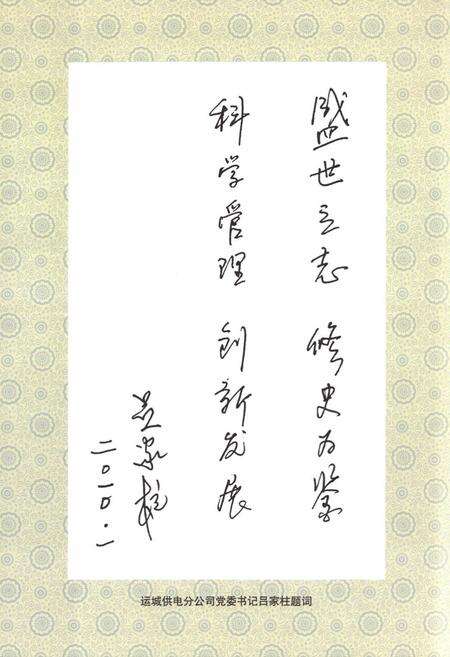 盛世立志 修史为鉴
科学管理 创新发展
吕家柱
二〇一〇·一
运城供电分公司党委书记吕家柱题词